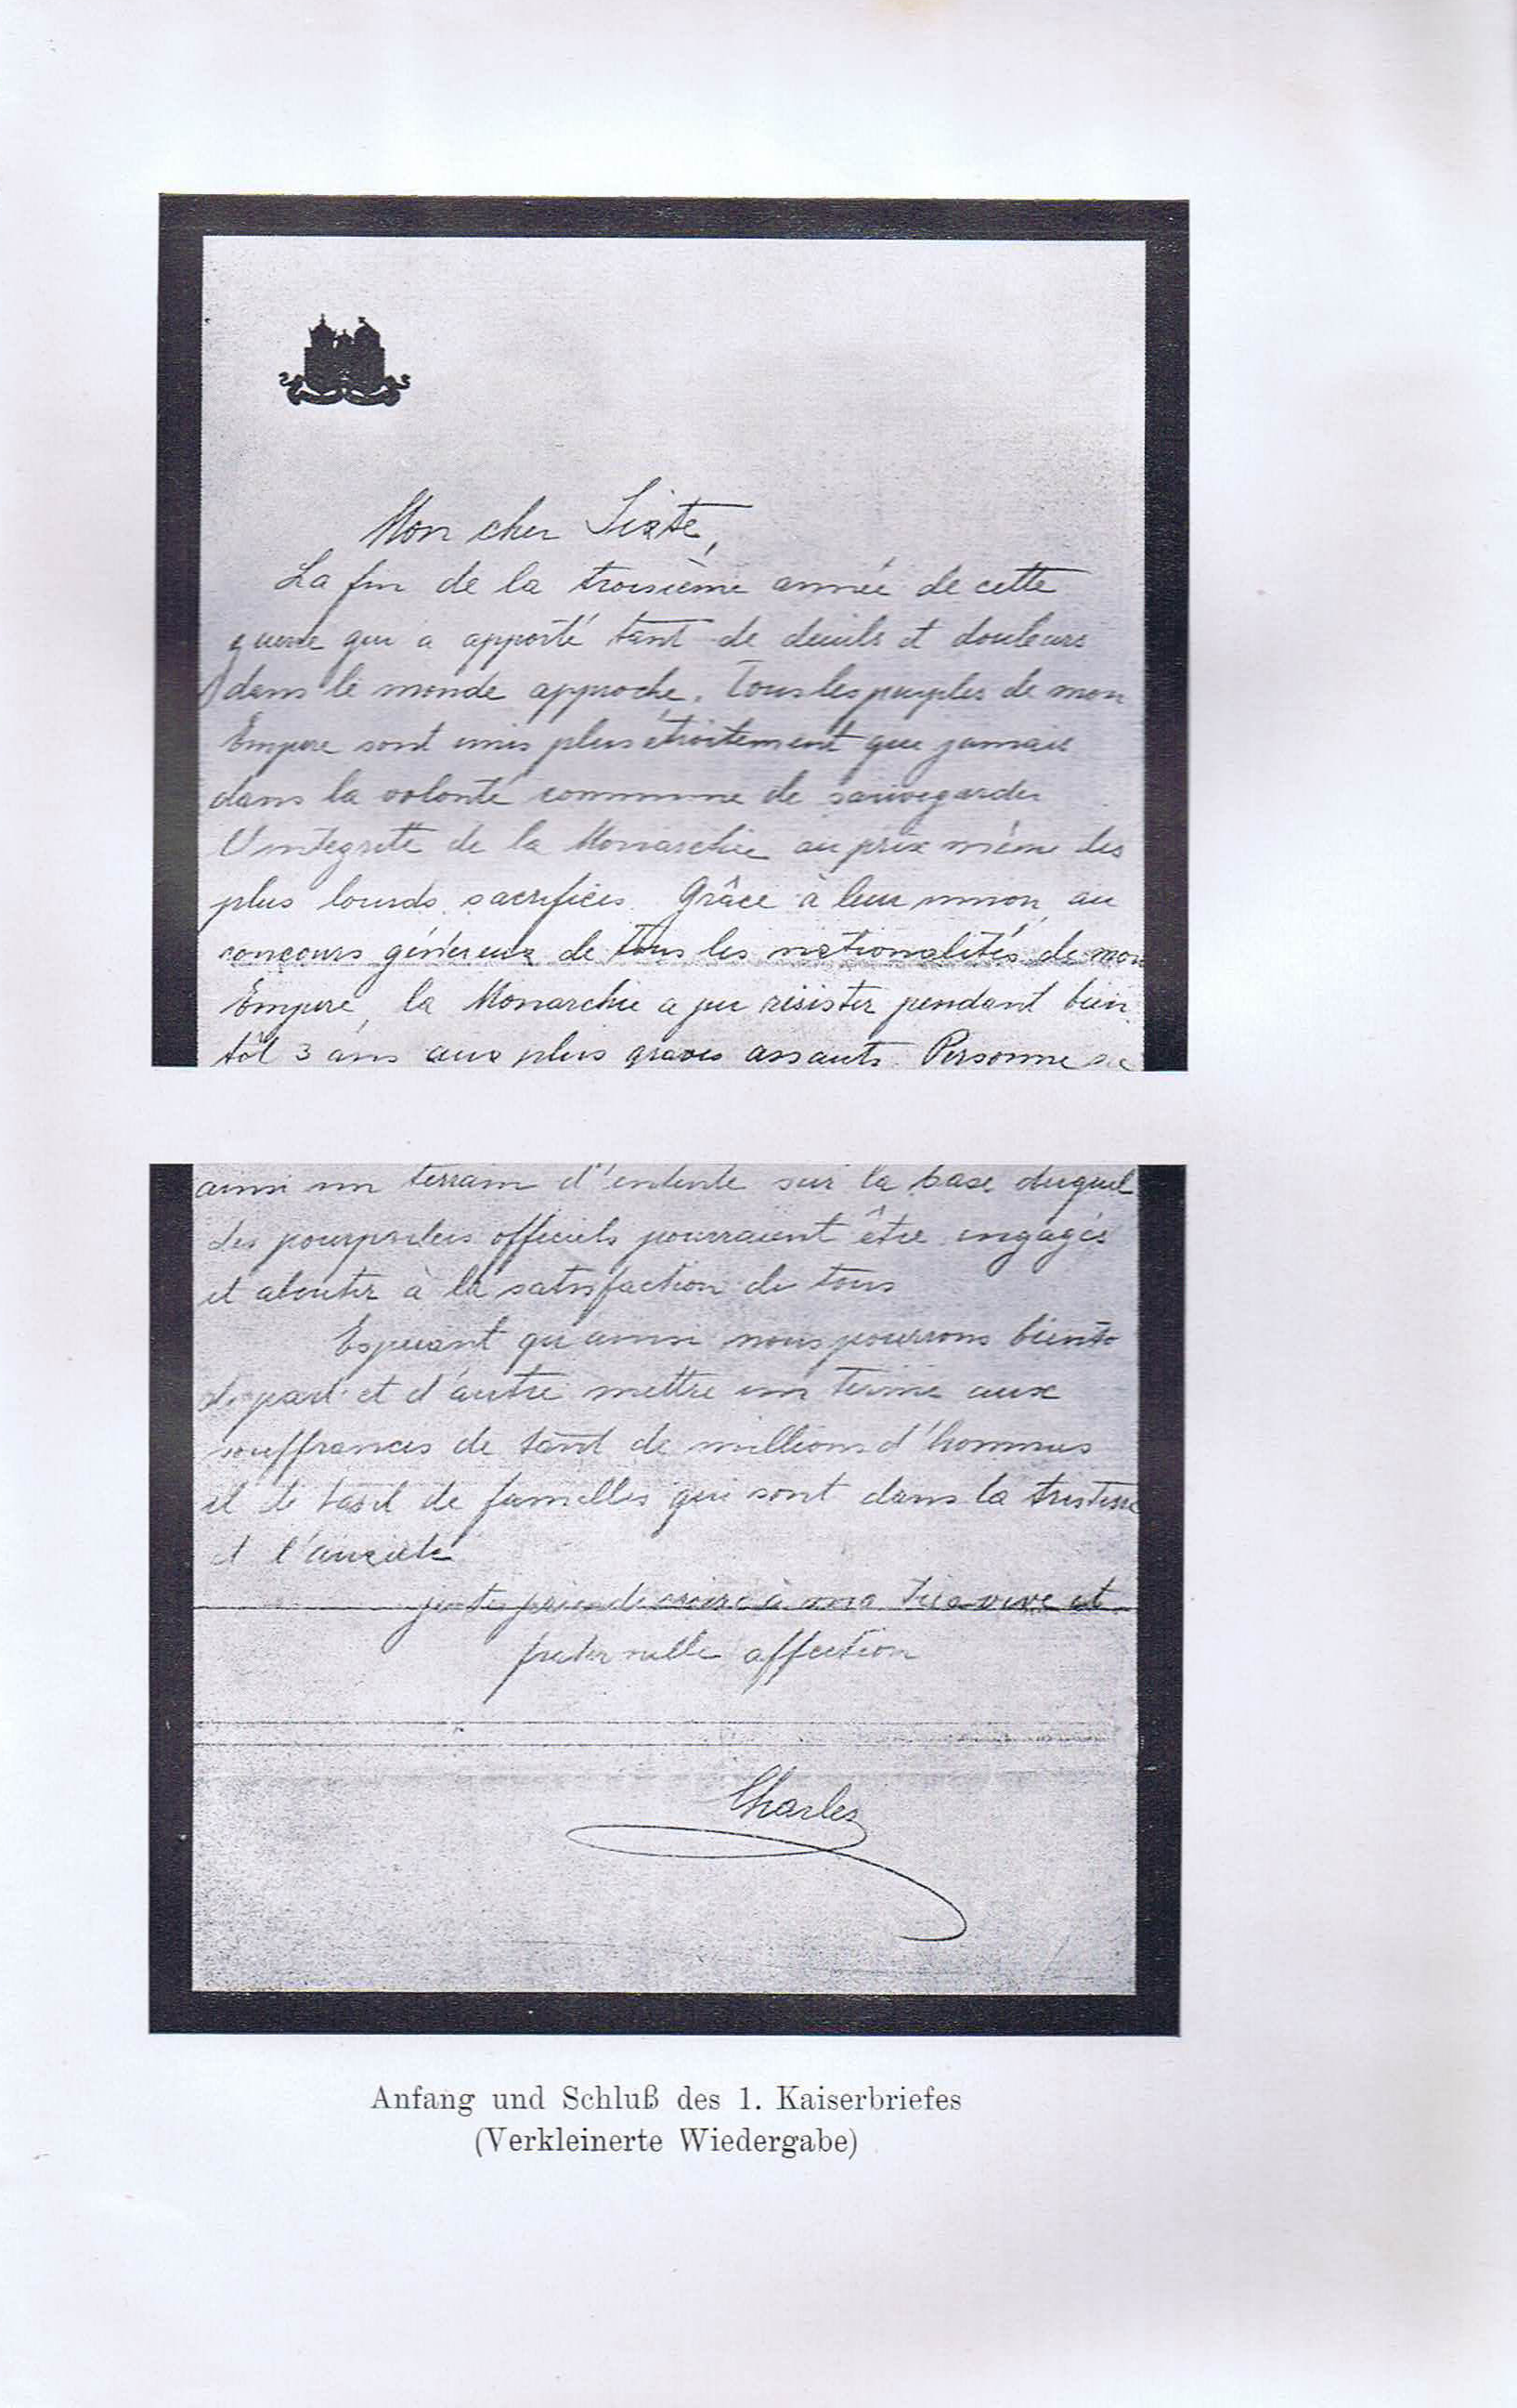 Mon cher Sixte,
La fin de la troisième année de cette
guerre qui a apporté tant de deuils et douleurs
dans le monde approche. Tous les peuples de mon
Empire sont unis plus étroitement que jamais
dans la volonté commune de sauvegarder
l'intégrité de la Monarchie au prix même des
plus lourds sacrifices. Grâce à leur union, au
concours généreux de tous les nationalités de mon
Empire, la Monarchie a pu résister pendant bien
tôt 3 ans aux plus graves assauts. Personne ne
ainsi un terrain d'entente sur la base duquel
des pourparlers officiels pourraient être engagés
et aboutir à la satisfaction de tous
Espérant qu'ainsi nous pourrons bientôt
de part et d'autre mettre un terme aux
souffrances de tant de millions d'hommes
et de tant de familles qui sont dans la tristesse
et l'anxiété
je te prie de croire à ma très vive et
fraternelle affection
Charles
Anfang und Schluß des 1. Kaiserbriefes
(Verkleinerte Wiedergabe)